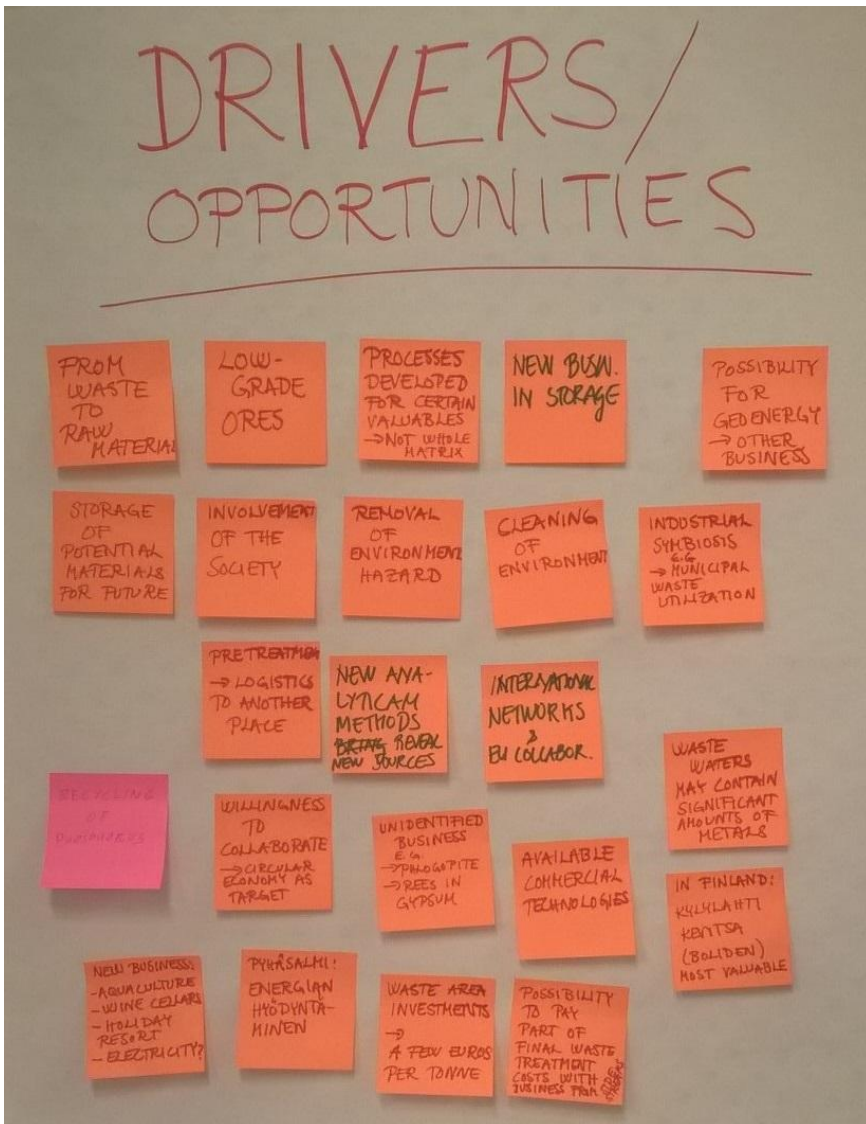 DRIVERS/
OPPORTUNITIES
FROM
WASTE
TO
RAW
MATERIAL
LOW-
GRADE
ORES
PROCESSES
DEVELOPED
FOR CERTAIN
VALUABLES
→ NOT WHOLE
MATRIX
NEW BUSIN.
IN STORAGE
POSSIBILITY
FOR
GEOENERGY
→ OTHER
BUSINESS
STORAGE
OF
POTENTIAL
MATERIALS
FOR FUTURE
INVOLVEMENT
OF THE
SOCIETY
REMOVAL
OF
ENVIRONMENT
HAZARD
CLEANING
OF
ENVIRONMENT
INDUSTRIAL
SYMBIOSIS
E.G
→ MUNICIPAL
WASTE
UTILIZATION
→ LOGISTICS
TO ANOTHER
PLACE
NEW ANA-
LYTICAM
METHODS
BRING REVEAL
NEW SOURCES
INTERNATIONAL
NETWORKS
&
EU COLLABOR.
WASTE
WATERS
MAY CONTAIN
SIGNIFICANT
AMOUNTS OF
METALS
RECYCLING
OF
WILLINGNESS
TO
COLLABORATE
→ CIRCULAR
ECONOMY AS
TARGET
UNIDENTIFIED
BUSINESS
E.G.
→ PHLOGOPITE
→ REES IN
GYPSUM
AVAILABLE
COMMERCIAL
TECHNOLOGIES
IN FINLAND:
KYLYLAHTI
(BOLIDEN)
MOST VALUABLE
NEW BUSINESS:
- AQUACULTURE
- WINE CELLARS
- HOLIDAY
RESORT
- ELECTRICITY?
PYHÄSALMI:
ENERGIAN
HYÖDYNTÄ-
MINEN
WASTE AREA
INVESTMENTS
→
A FEW EUROS
PER TONNE
POSSIBILITY
TO PAY
PART OF
FINAL WASTE
TREATMENT
COSTS WITH
BUSINESS FROM